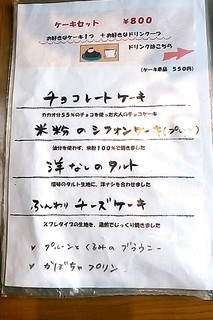 ケーキセット ￥800
お好きなケーキ1つ ＋お好きなドリンク一つ
ドリンクはこちら
(ケーキ単品 550円)
チョコレートケーキ
カカオ分55%のチョコを使った大人のチョコケーキ
米粉のシフォンケーキ(プレーン)
油分を使わず、米粉100%で焼きました
洋なしのタルト
塩味のタルト生地に、洋ナシを合わせました
ふんわりチーズケーキ
スフレタイプの生地を、湯煎でじっくり焼きました
✓ プルーンとくるみのブラウニー
✓ かぼちゃプリン